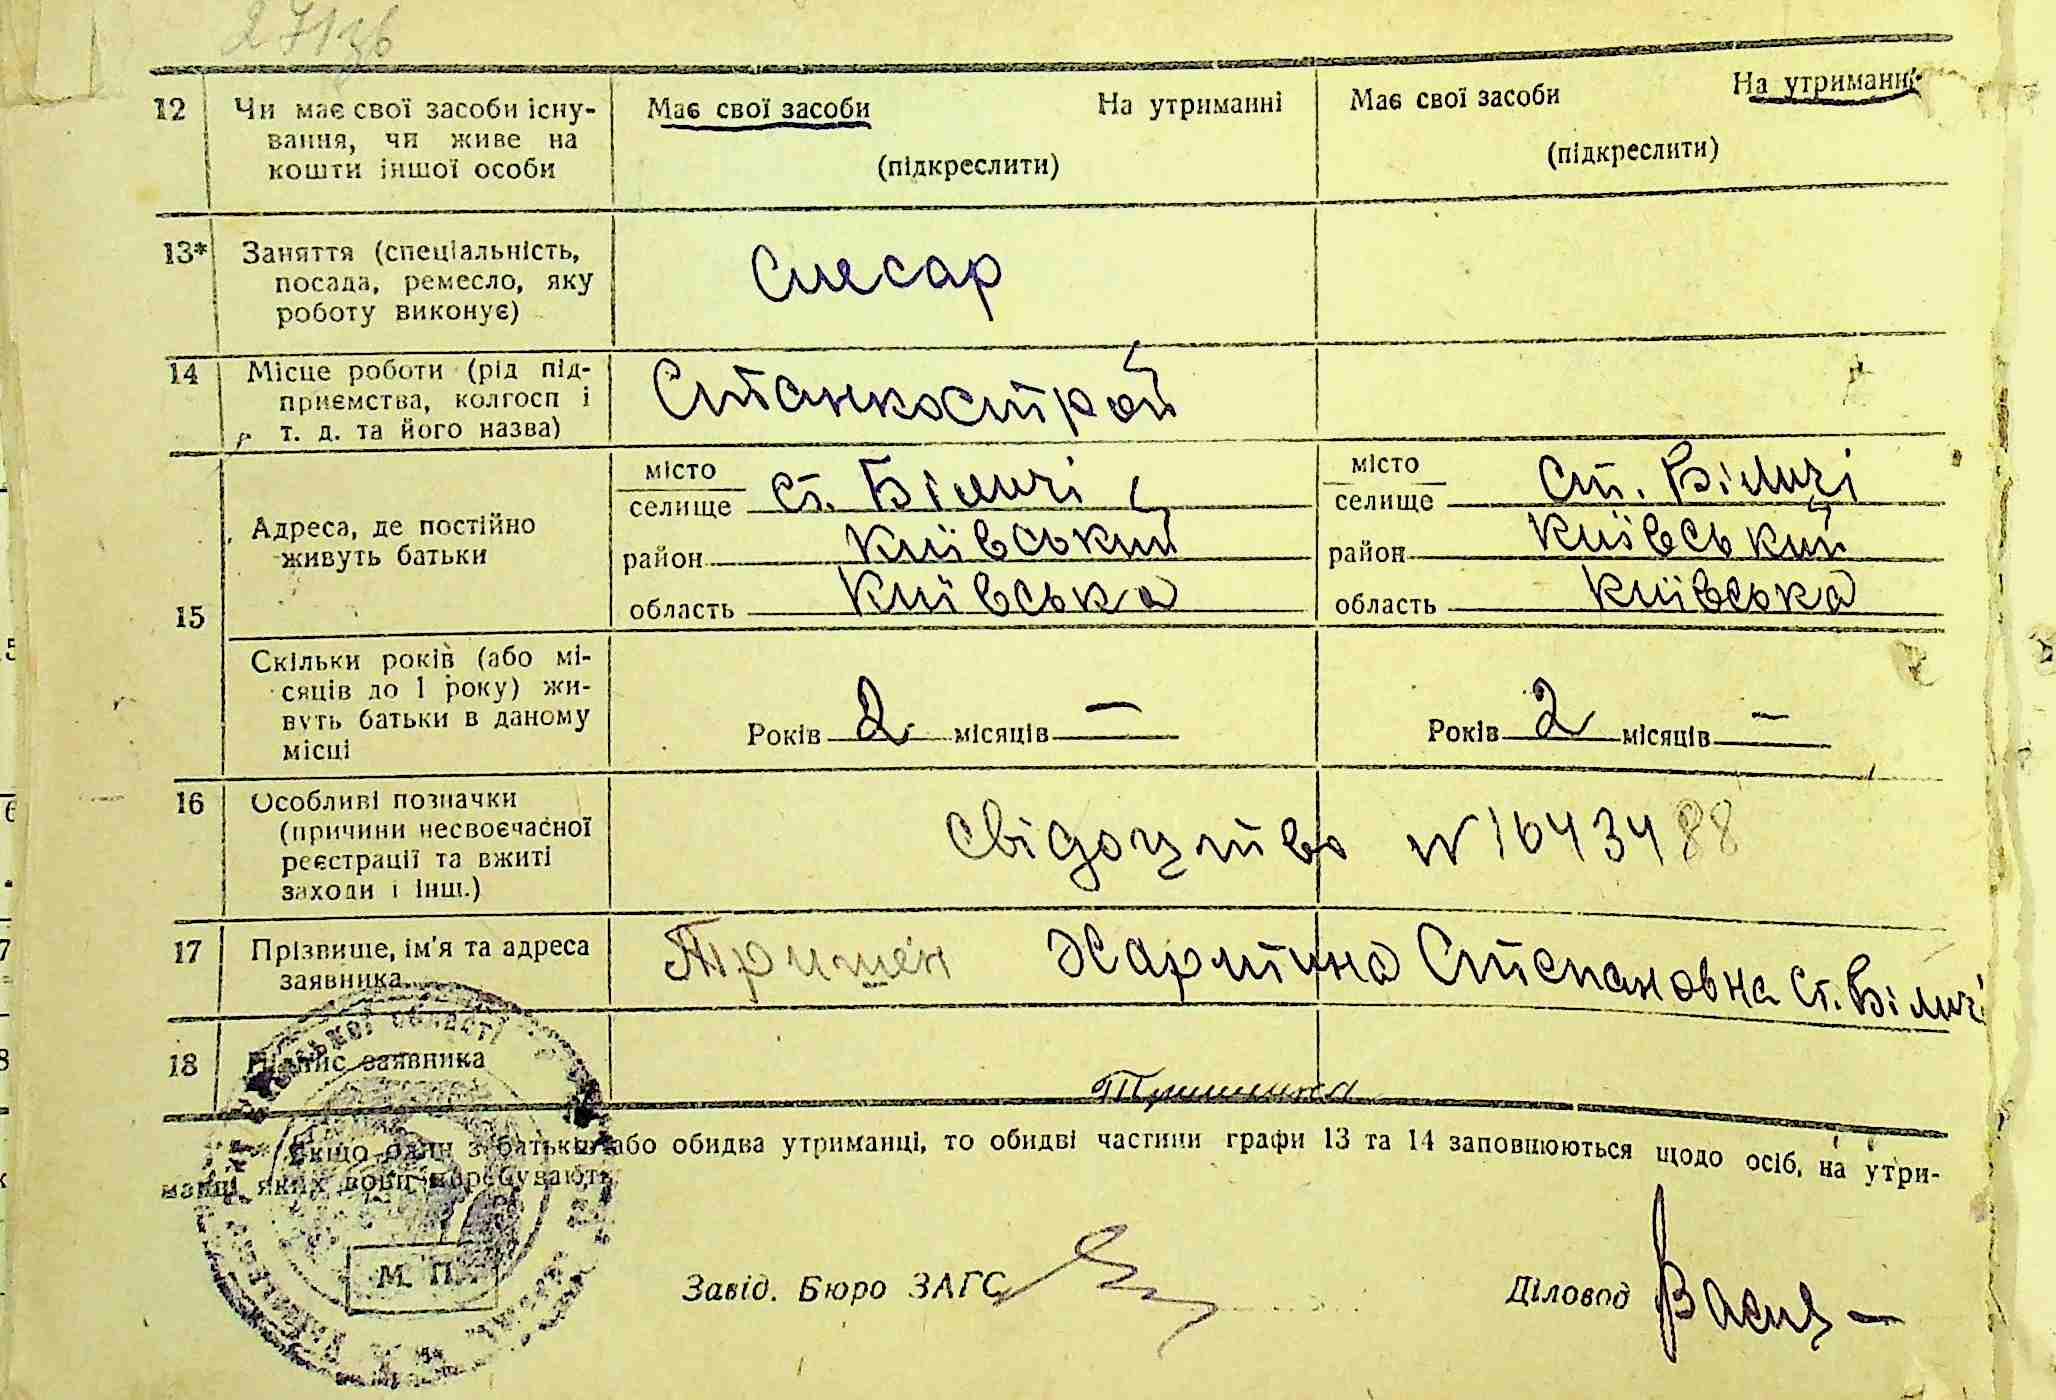 271зв
12 Чи має свої засоби існу-
вання, чи живе на
кошти іншої особи
Має свої засоби На утриманні
(підкреслити)
Має свої засоби На утриманні
(підкреслити)
13* Заняття (спеціальність,
посада, ремесло, яку
роботу виконує)
Слесар
14 Місце роботи (рід під-
приємства, колгосп і
т. д. та його назва)
Станкострой
15
Адреса, де постійно
живуть батьки
місто
селище ст. Біличі
район Київський
область Київська
місто
селище ст. Біличі
район Київський
область Київська
Скільки років (або мі-
сяців до 1 року) жи-
вуть батьки в даному
місці
Років 2 місяців —
Років 2 місяців —
16 Особливі позначки
(причини несвоєчасної
реєстрації та вжиті
заходи і інш.)
свідоцтво № 1043488
17 Прізвище, ім'я та адреса
заявника
Харитина Степановна ст. Біличі
18 Підпис заявника
* Якщо один з батьків або обидва утриманці, то обидві частини графи 13 та 14 заповнюються щодо осіб, на утри-
манні яких вони перебувають.
М. П.
Завід. Бюро ЗАГС
Діловод